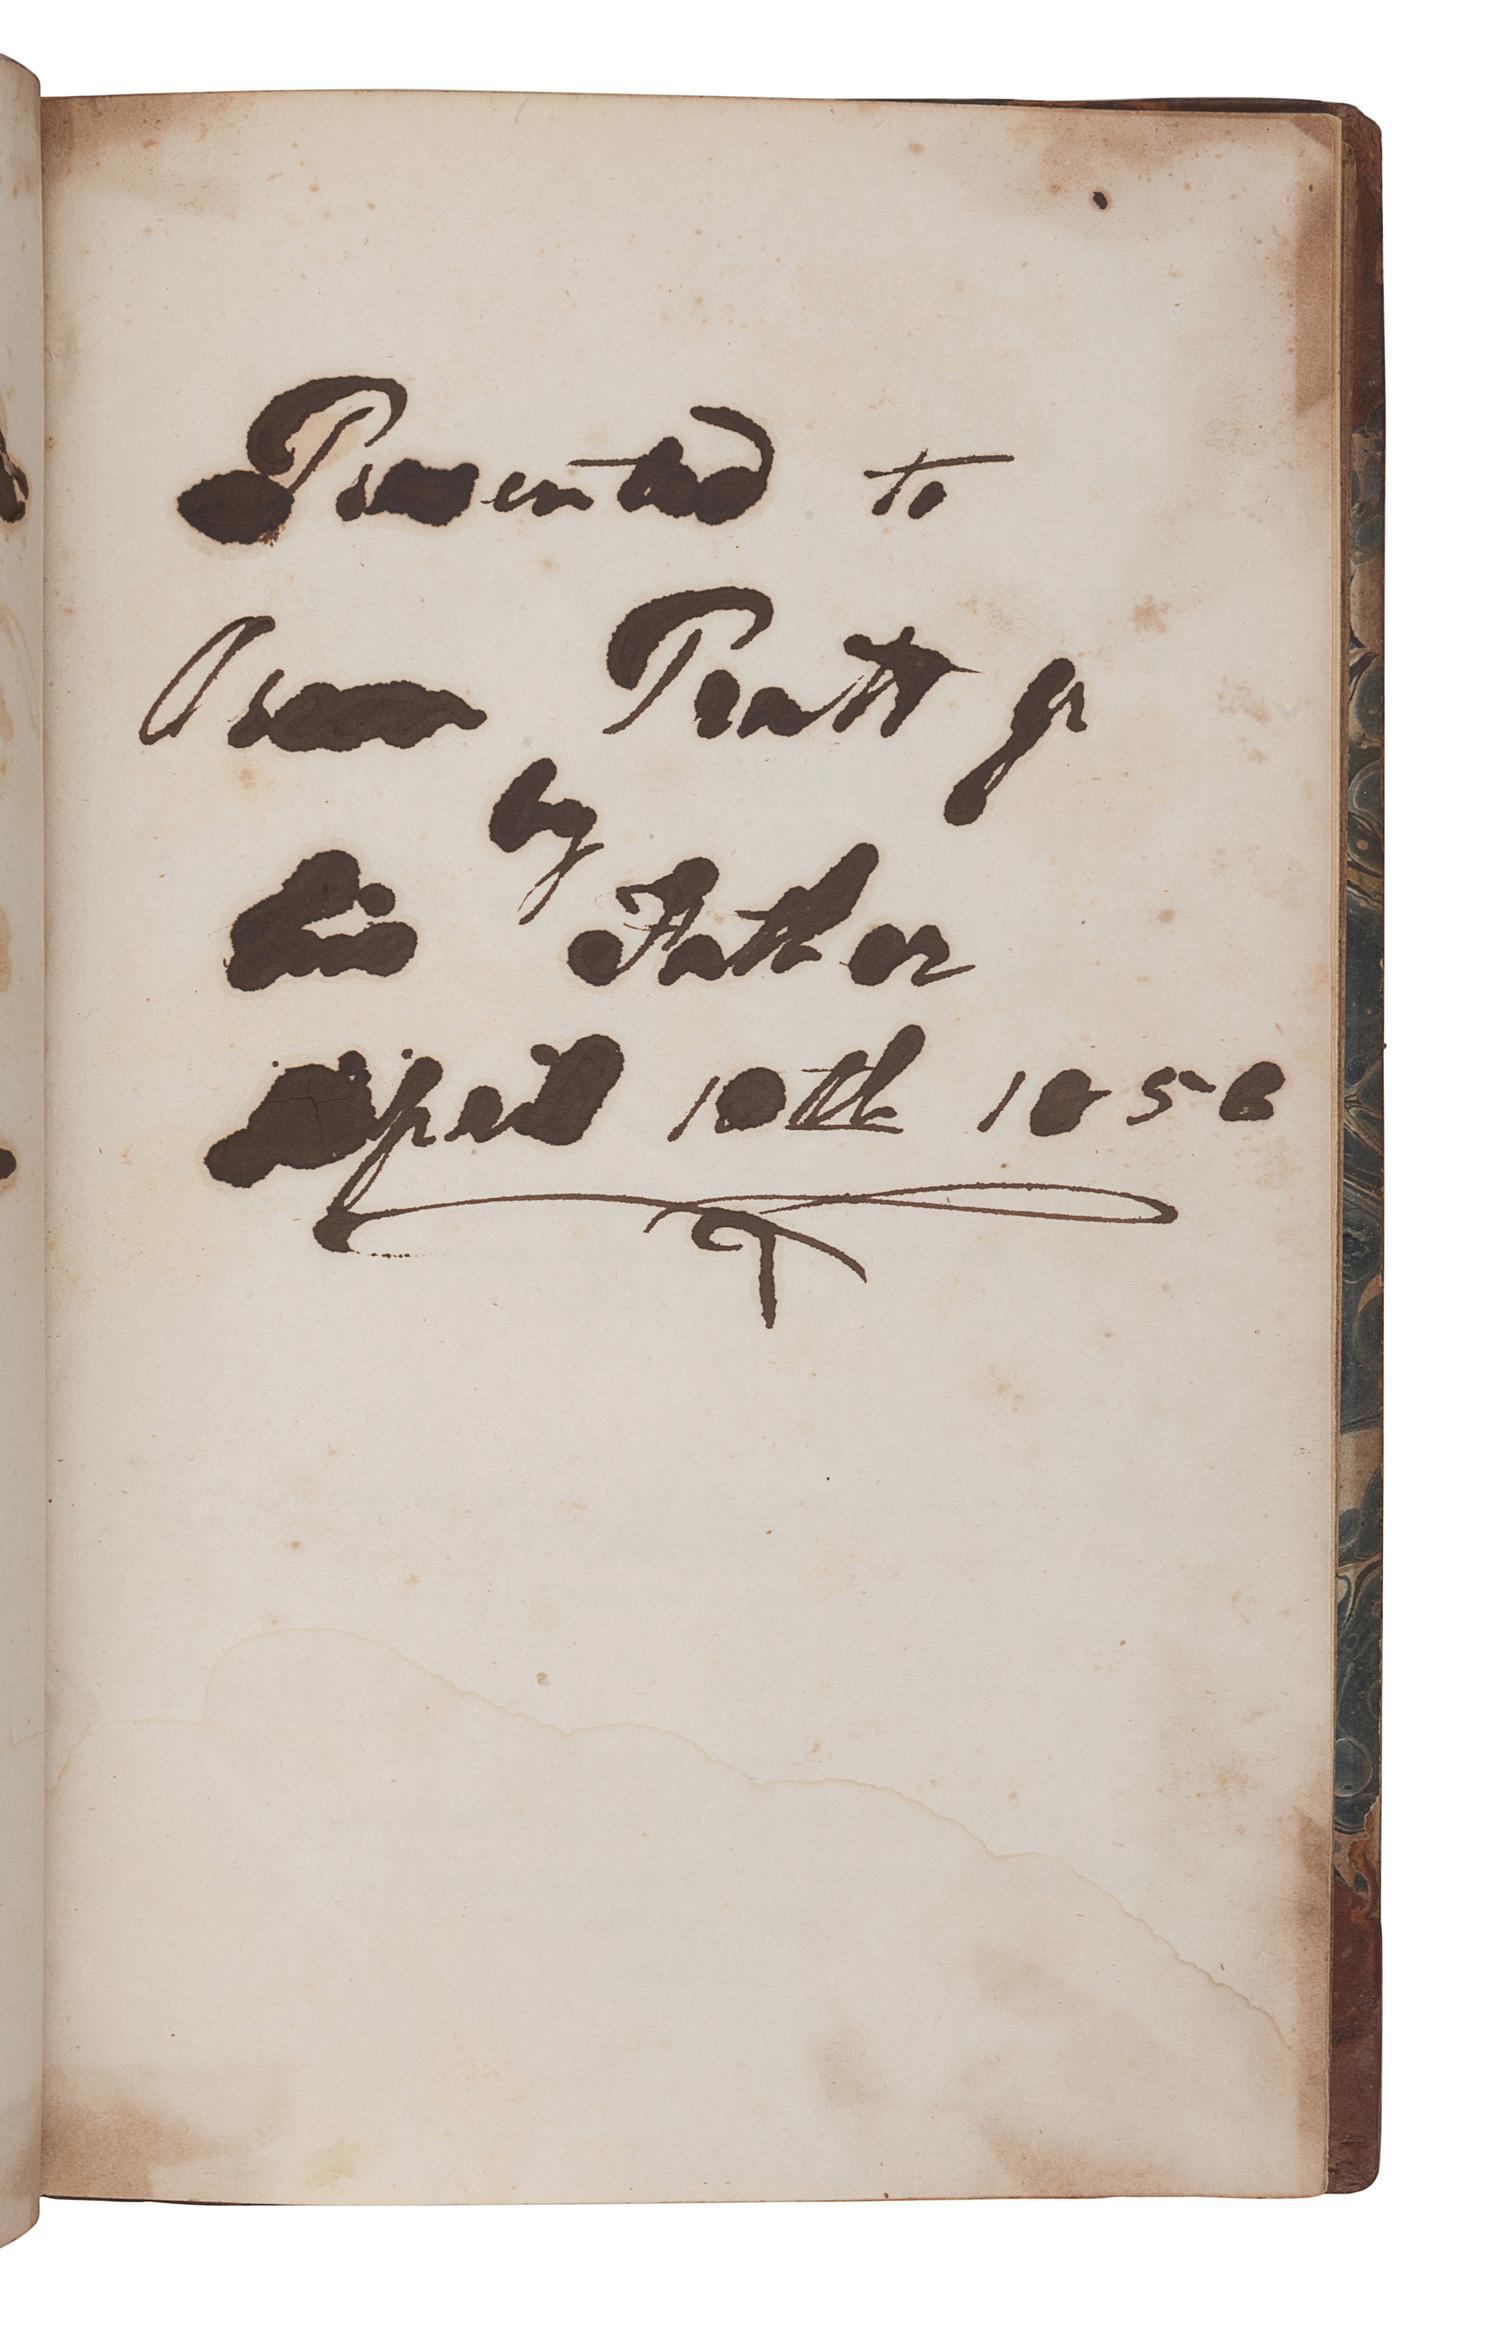 Presented to
Pratt Jr
by
his Father
April 10th